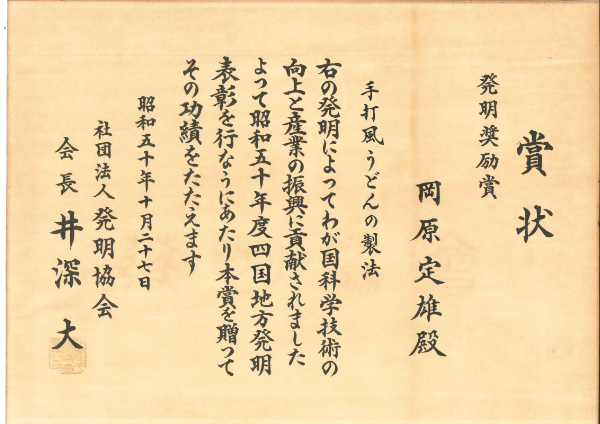 賞状
発明奨励賞
岡原定雄殿
手打風うどんの製法
右の発明によってわが国科学技術の
向上と産業の振興に貢献されました
よって昭和五十年度四国地方発明
表彰を行なうにあたり本賞を贈って
その功績をたたえます
昭和五十年十月二十七日
社団法人発明協会
会長 井深大